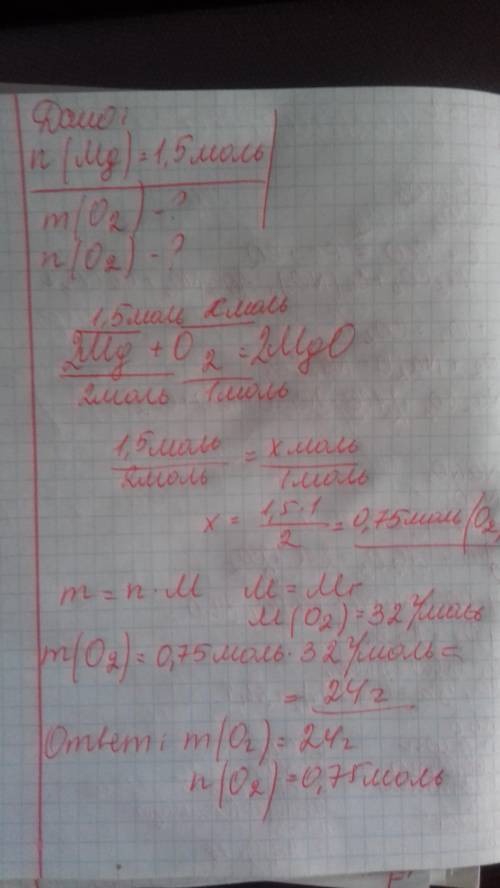 Дано:
n(Mg)=1,5моль
m(O2)-?
n(O2)-?
1,5моль xмоль
2Mg + O2 = 2MgO
2моль 1моль
1,5моль/2моль = xмоль/1моль
x = 1,5·1/2 = 0,75моль(O2)
m = n·M M = Mr
M(O2)=32г/моль
m(O2)=0,75моль·32г/моль=
= 24г
Ответ: m(O2)=24г
n(O2)=0,75моль